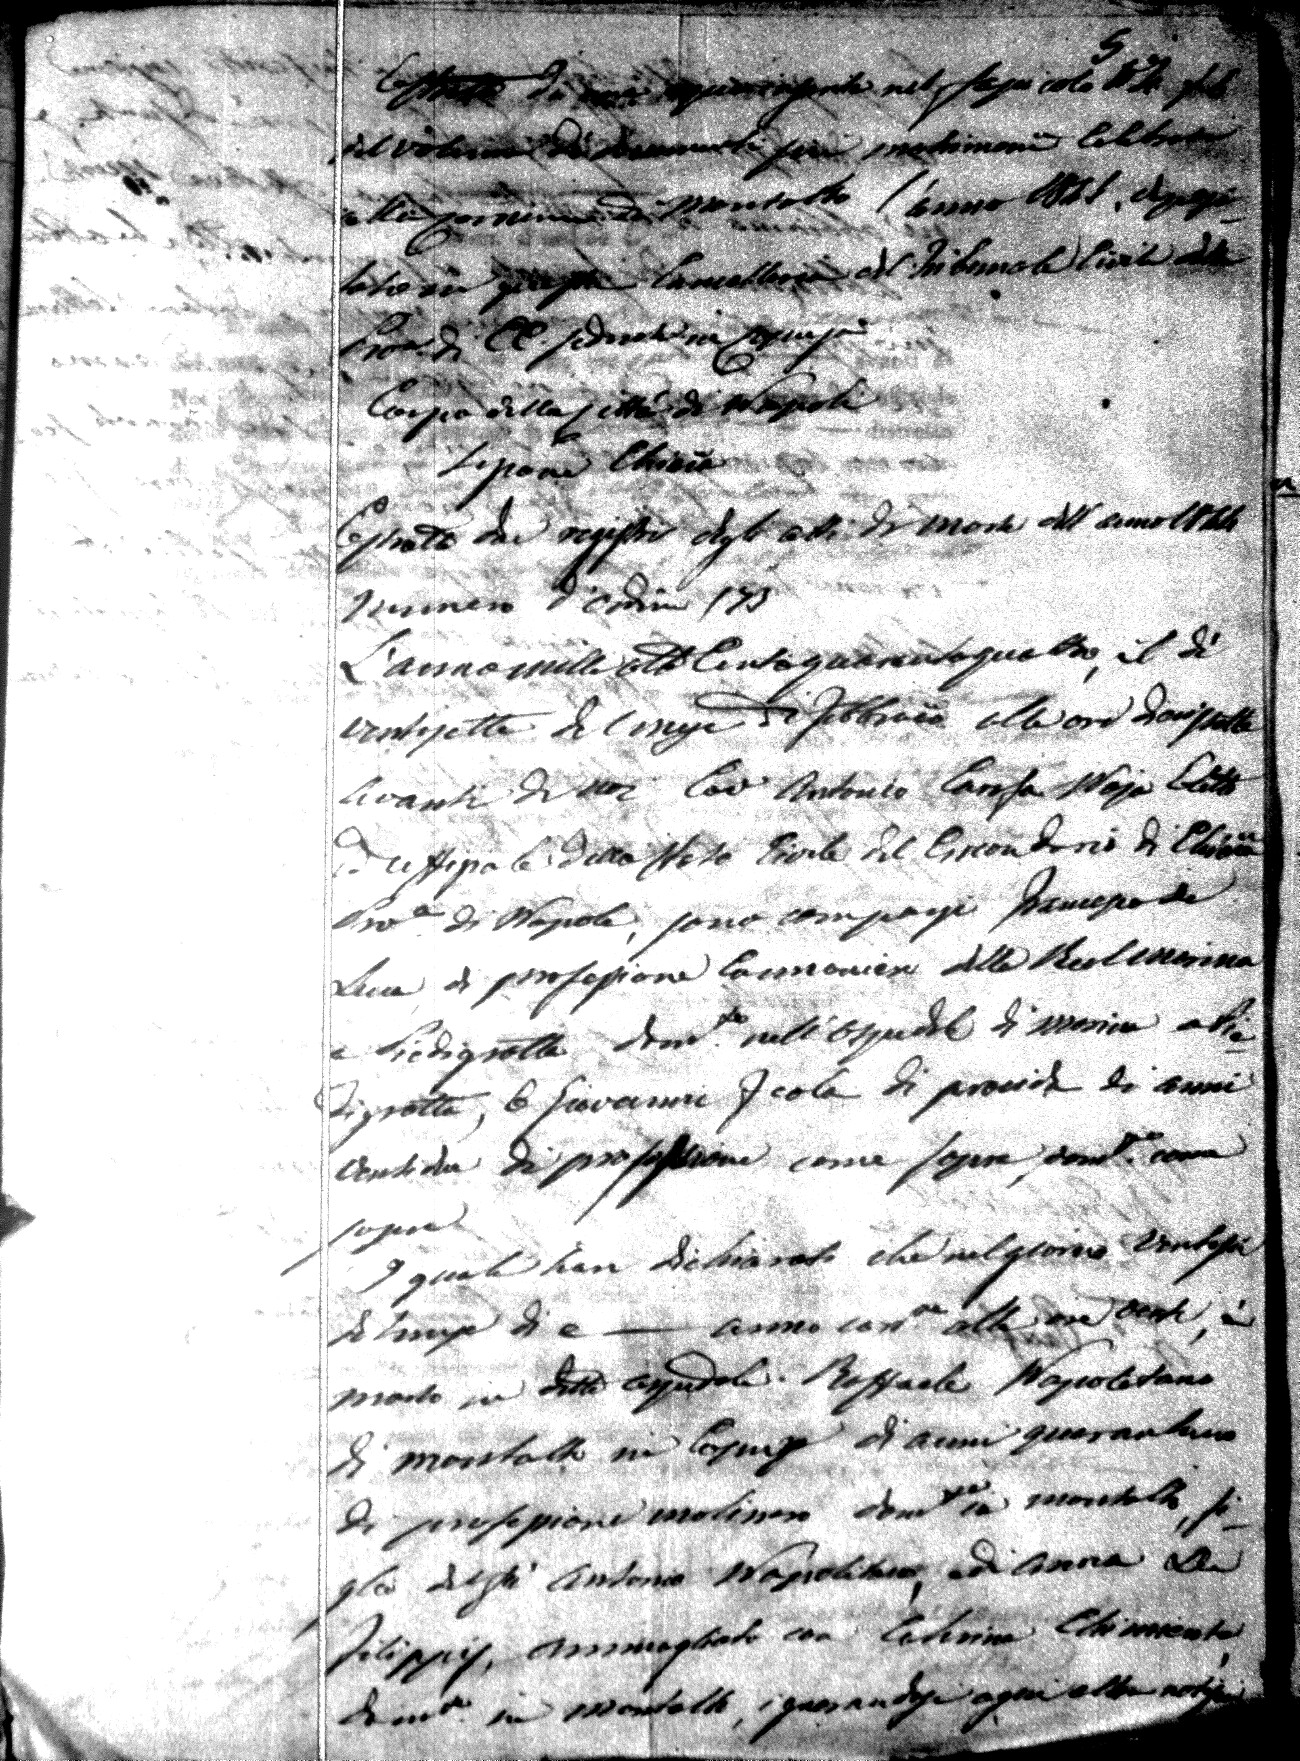 5
Estratto da una esistente nel fascicolo
del volume di documenti pei matrimonii celebrati
nella comune di Montalto l'anno deposi-
tato in questa Cancelleria del Tribunale Civile della
Prov.a di CC. sedente in Cosenza
Corpo della città di Napoli
Sezione Chiaia
Estratto dai registri degli atti di morte dell'anno 1844
Numero d'ordine 173
L'anno mille otto Cento quarantaquattro, il dì
ventisette del mese di Febbraio alle ore diecisette
avanti di noi Cav Antonio Carafa Noja Eletto
ed uffiziale dello stato Civile del Circondario di Chiaia
Prov.a di Napoli, sono comparsi Francesco de
Luca di professione Cannoniere della Real marina
a Piedigrotta dom.to nell'ospedale di marina a Pie-
digrotta, e Giovanni Scola di Procida di anni
ventidue di professione come sopra, dom.to come
sopra
I quali han dichiarato che nel giorno ventisei
del mese di e — anno corr.te alle ore venti, è
morto in detto ospedale Raffaele Napoletano
di Montalto in Cosenza di anni quarantuno
di professione molinaro dom.to in Montalto, fi-
glio degli Antonio Napolitano, e di Anna De
Filippis, ammogliato con Caterina Chimento
dom.ta in Montalto, ignorandosi ogni altra notizia